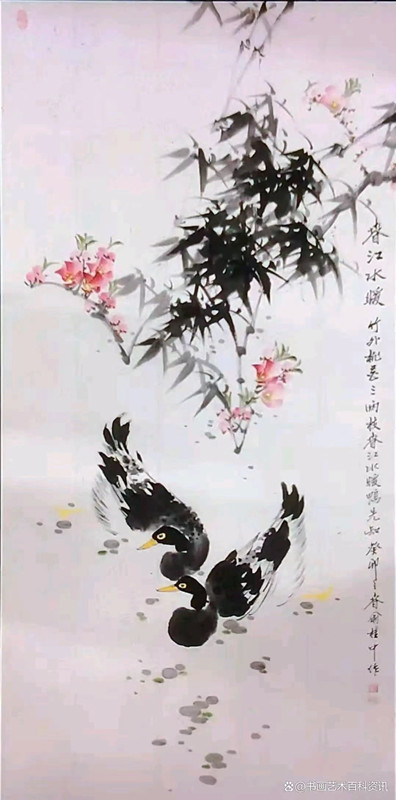 春江水暖 竹外桃花三两枝春江水暖鸭先知癸卯之春周桂中作
@书画艺术百科资讯